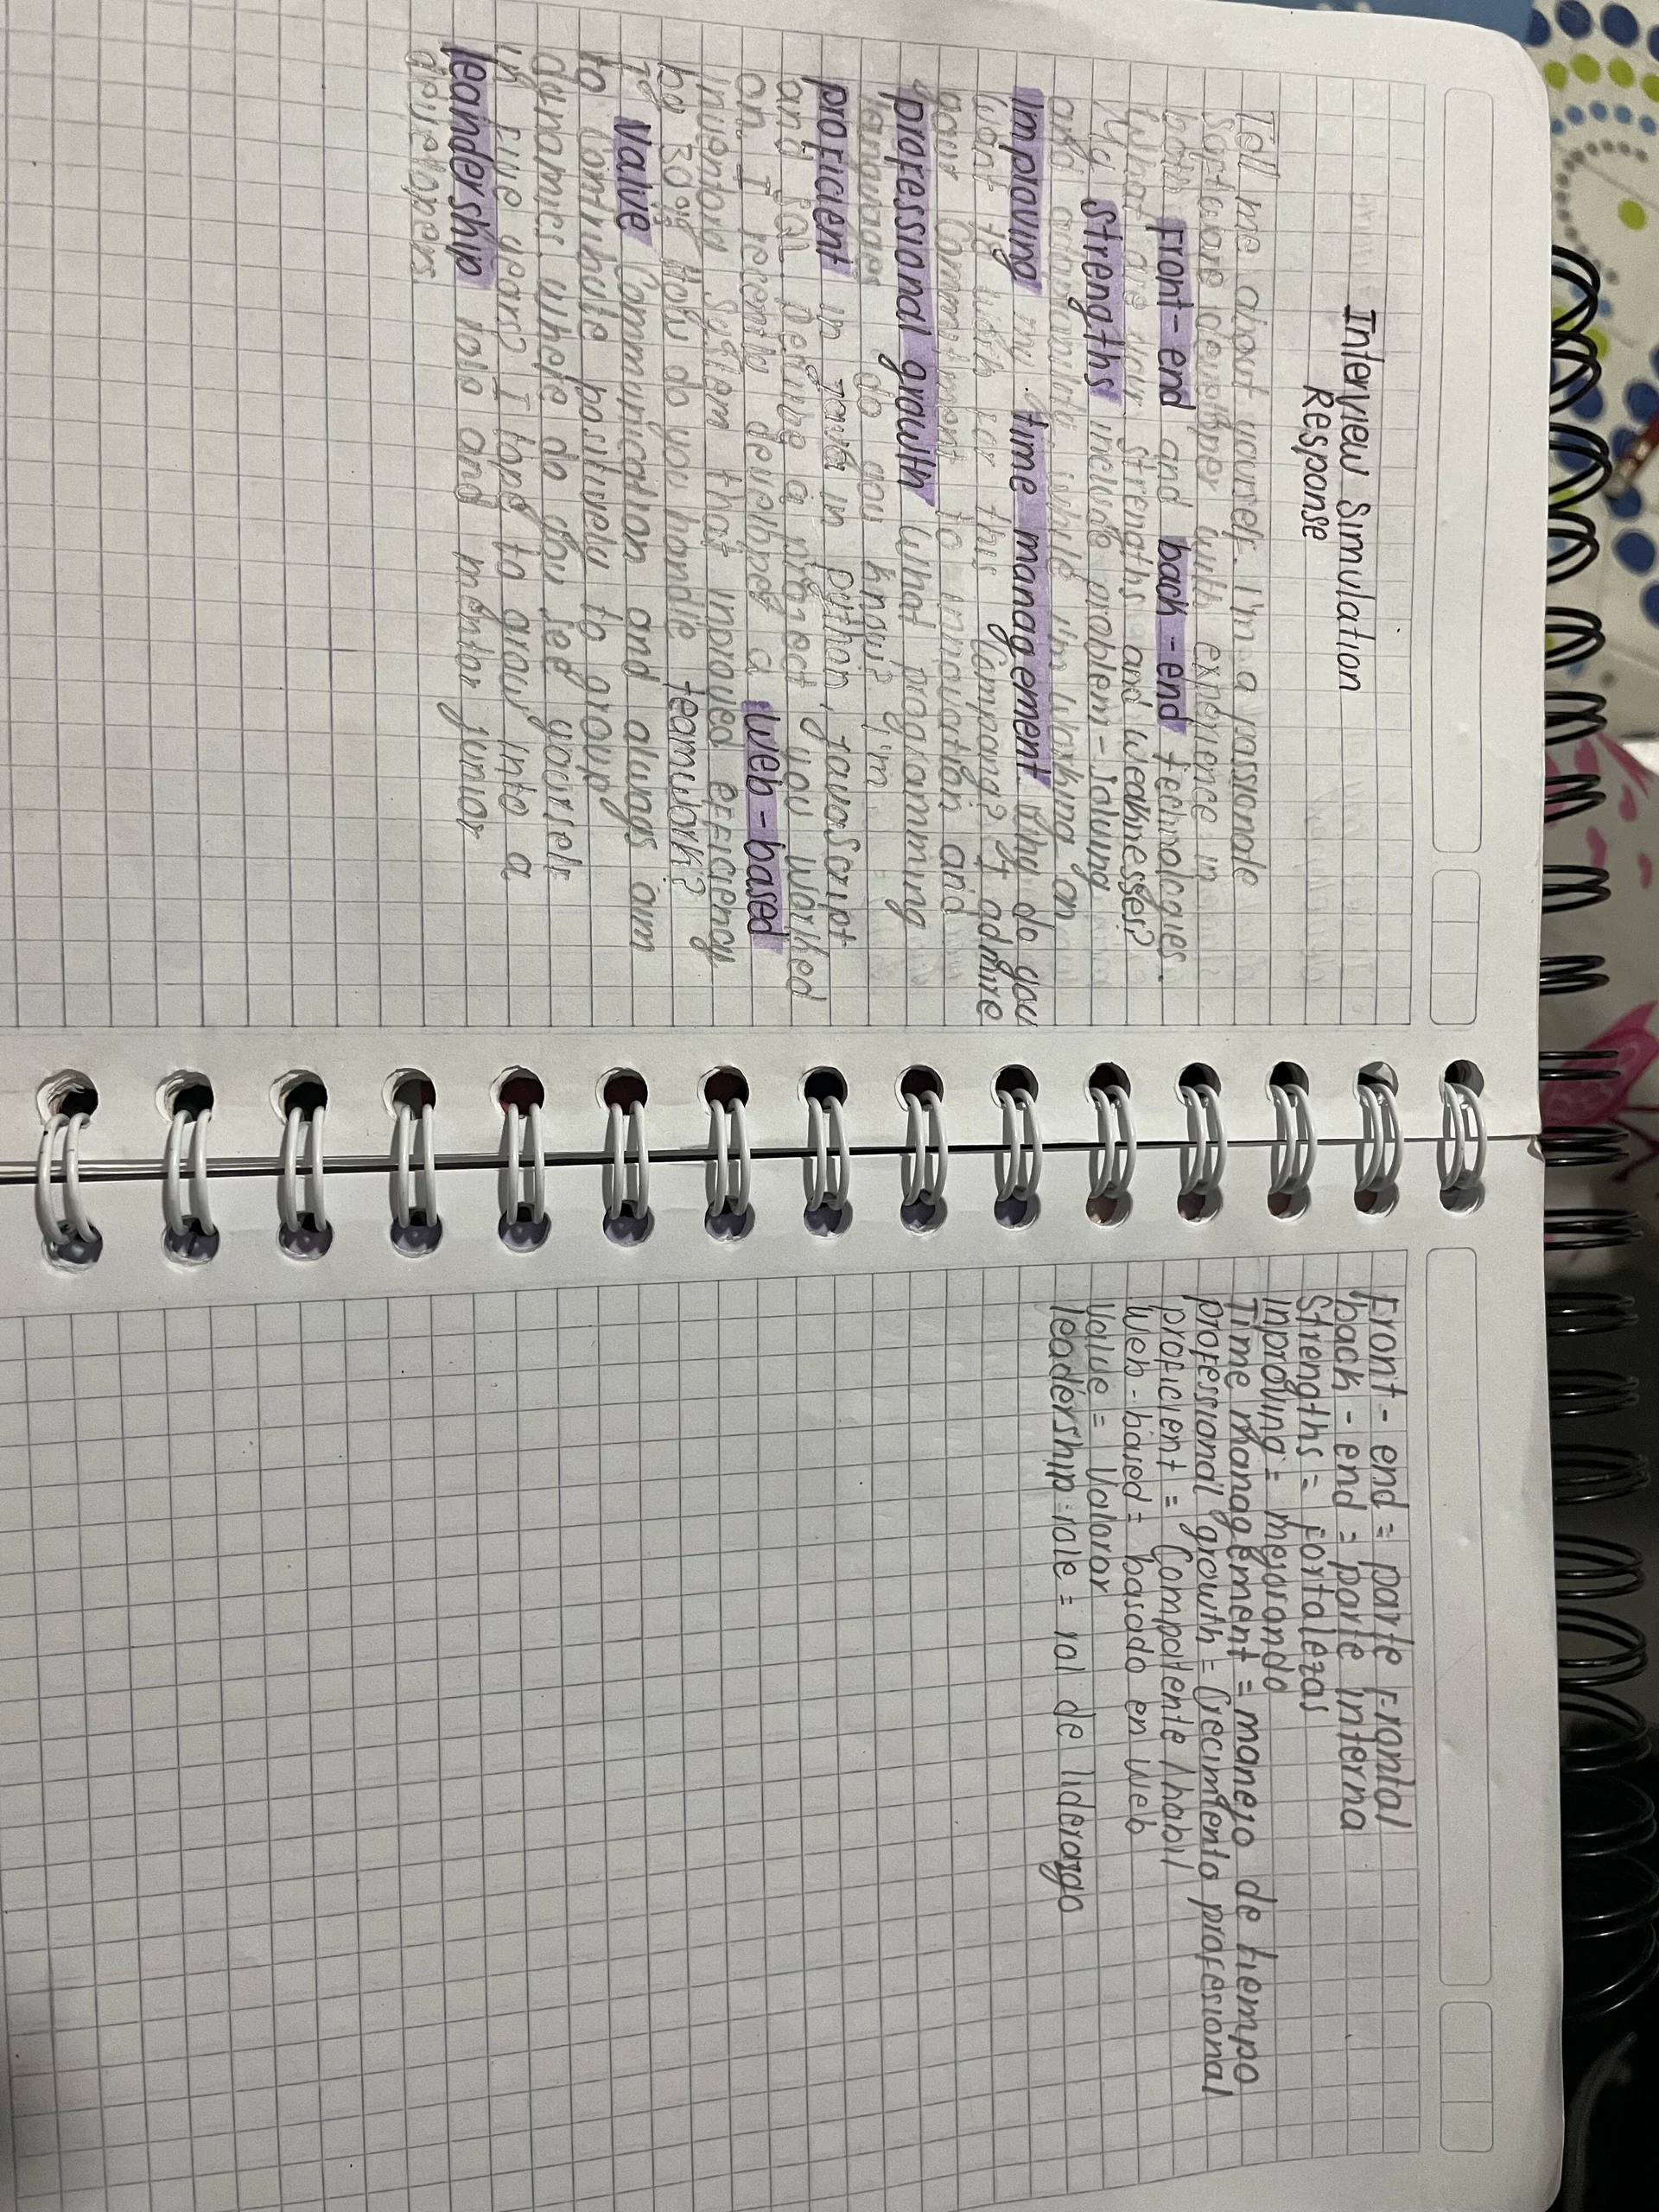 Interview Simulation
Response
Tell me about yourself. I'm a passionate
software developer with experience in
both Front-end and back-end technologies.
What are your strengths and weaknesses?
My strengths include problem-solving
and while I'm working on
improving my time management. Why do you
want to work for this company? I admire
your commitment to innovation and
professional growth What programming
languages do you know? I'm
proficient in java in python, javaScript
and SQL Describe a project you worked
on. I recently developed a web-based
inventory system that improved efficiency
by 30% How do you handle teamwork?
I value communication and always aim
to contribute positively to group
dynamics. where do you see yourself
in five years? I hope to grow into a
leandership role and mentor junior
developers.
Front-end = parte Frontal
back-end = parte interna
Strengths = fortalezas
Inproving = mejorando
Time management = manejo de tiempo
professional growth = Crecimiento profesional
proficient = Competente / habil
Web-based = basado en web
Value = Valorar
leadership role = rol de liderazgo